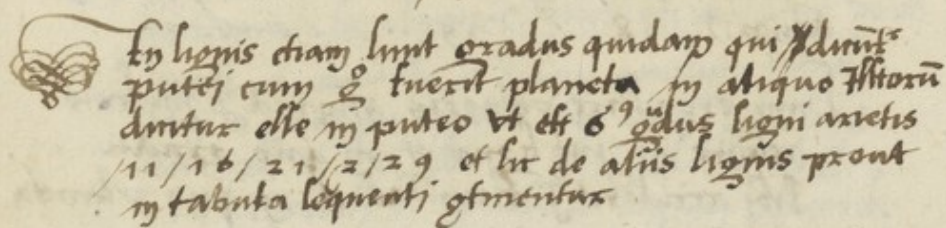 In signis etiam sunt gradus quidam qui dicūtʳ
putei cum gͦ fuerit planeta in aliquo illorū
dicitur esse in puteo vt est 6⁹ gͣdus signi arietis
/11/16/21/2/29 et sic de aliis signis prout
in tabula sequenti ꝯtinentur